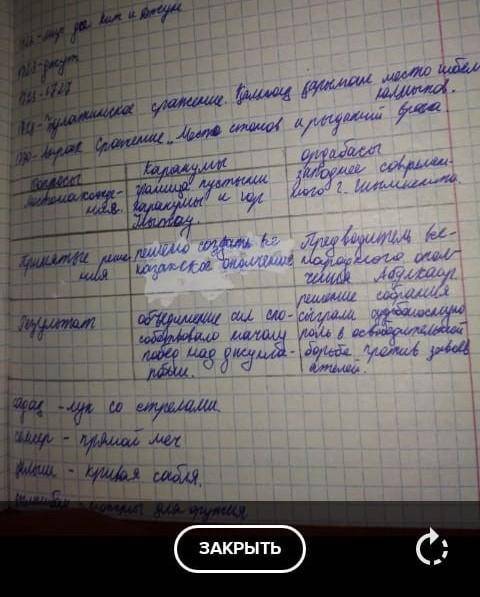 мир
джут
1723-1727
Булантинское сражение. Қалмақ қырылған место гибели калмыков.
сражение. "Место стонов и рыданий врага
Вопросы
Каракумы
ордабасы
местонахождения.
граница пустыни каракумы и гор Улытау.
западнее современного г. Шымкента.
Принятые решения
решено создать всеказахское ополчение
Предводитель всенародного ополчения Абулхаир
Результат
объединение сил способствовало началу побед над джунгарами.
решение собрания сыграли судьбоносную роль в освободительной борьбе против завоевателей.
садақ - лук со стрелами
семсер - прямой меч
қылыш - кривая сабля.
для оружия
ЗАКРЫТЬ